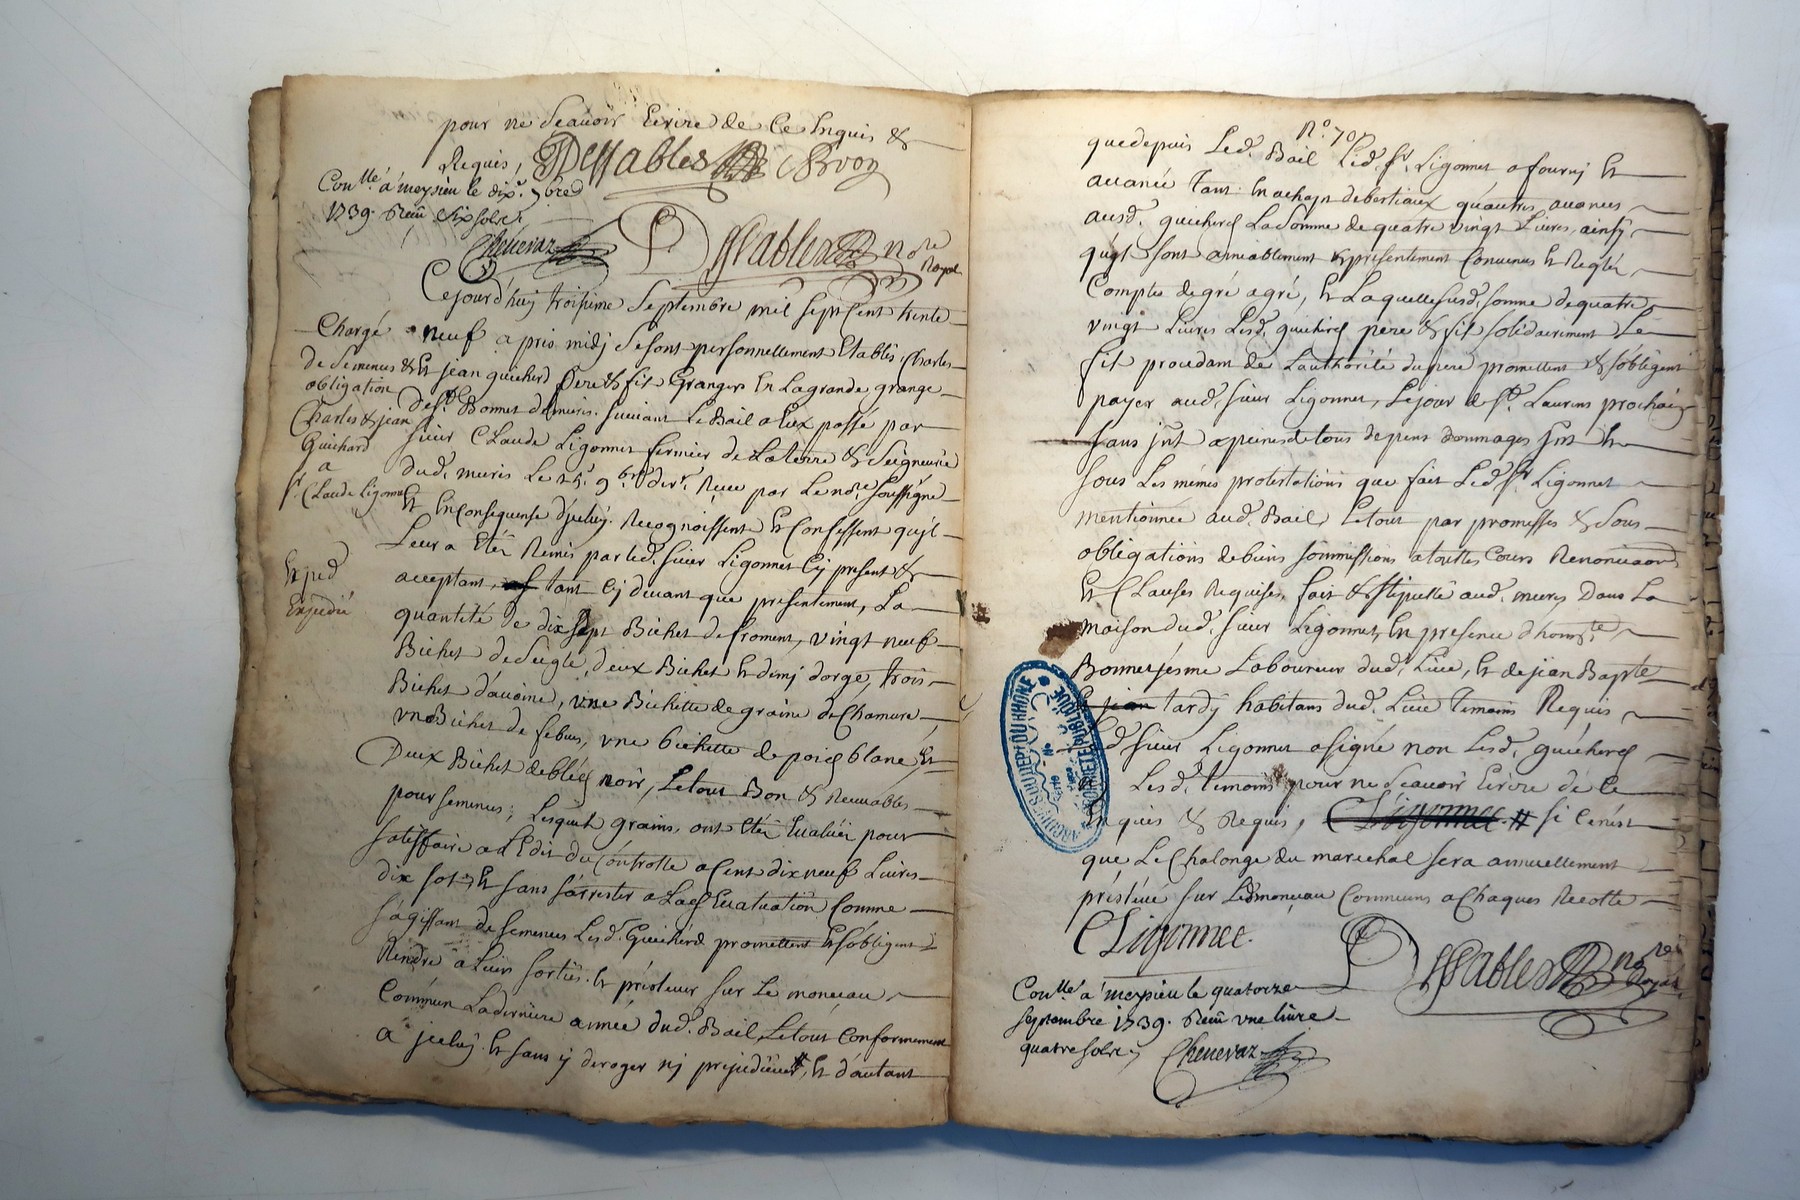 pour ne Scavoir Ecrire de Ce Enquis &
Requis, DEssables Broon
Conlle. a meysieu le dixe. 7bre
1739. Reçu six sols
Chenevaz
DEssables nore
Royal
Cejourd'huy troisieme Septembre mil Sept Cent trente
neuf apris midj se sont personnellement Etablis Charles
Chargé
de Semences &
obligation
Charles & jean
Guichard
a
sr. Claude Ligonnet
Exped
Expedié
Et jean guicherd Pere & fils Grangers En Lagrande grange
de sr. Bonnet de mures. suivant Le Bail a Eux passé par
sieur Claude Ligonnet fermier de La terre & Seigneurie
dud. mures Le 25. 9bre. dere. Receu par Le nore. soussigné
Et En Consequense d'jceluy. Recognoissent Et Confessent qu'jl
Leur a Etée Remis par led. sieur Ligonnet Cy present &
acceptant, tant Cy devant que presentement, La
quantité de dix sept Bichet de froment, vingt neuf
Bichet de Seigle, deux Bichet Et demj d'orge, trois
Bichet d'avoine, vne Bichette de graine de Chanure
vn Bichet de febues, vne bichette de pois blanc, Et
Deux Bichet de bled noir, Le tout Bon & Receuables
pour semences; Lesquels grains, ont Etée Evaluée pour
satisffaire a L'Edit du Controlle a Cent dix neuf Livres
dix sols, Et sans s'arrester a Lad. Evaluation Comme
s'agissant de semences Lesd. Guicherd promettent Et s'obligent
Rendre a Leurs sorties. Et préleuer sur Le monceau
Commun La dernière année dud. Bail, Le tout Conformement
a jceluy. Et sans y deroger nj prejudicier, Et d'autant
No. 70
que depuis Led. Bail Led. sr. Ligonnet a fourny Et
auancé tant En achapt de bestiaux qu'autres auances
ausd. guicherd La Somme de quatre vingt Livres, ainsy
qu'jls sont amiablement & presentement Conuenus Et Reglés
Compte de gré a gré, Et Laquelle susd. somme de quatre
vingt Livres Lesd. guicherd pere & fils solidairement Le
fils procedant de L'authorité du pere promettent & s'obligent
payer aud. sieur Ligonnet, Le jour de st. Laurens prochain
sans jnt. a peines de tous depens dommages jnt. Et
sous Les mémes protestations que fait Led. sr. Ligonnet
mentionnée aud. Bail, Le tout par promesses & Sous
obligations de biens soumissions a touttes Cours Renonciaons
Et Clauses Requises, fait & stipullé aud. mures Dans La
maison dud. sieur Ligonnet, En presence d'honste.
Bonnet Laboureur dud. Lieu, Et de jean Bapte.
tardy habitans dud. Lieu Temoins Requis
Led. sieur Ligonnet a signé non Lesd. guicherd
Lesd. temoins pour ne Scavoir Ecrire de Ce
Enquis & Requis, CLigonnet # si C'en'est
que Le Chalonge du marechal sera annuellement
préleué sur Led. monceau Commun a Chaques Recolte
CLigonnet.
DEssables nore
Royal
Conlle. a meysieu le quatorze
septembre 1739. Reçu vne livre
quatre sols
Chenevaz
ARCHIVES DU DEPT DU RHÔNE
PROPRIÉTÉ PUBLIQUE